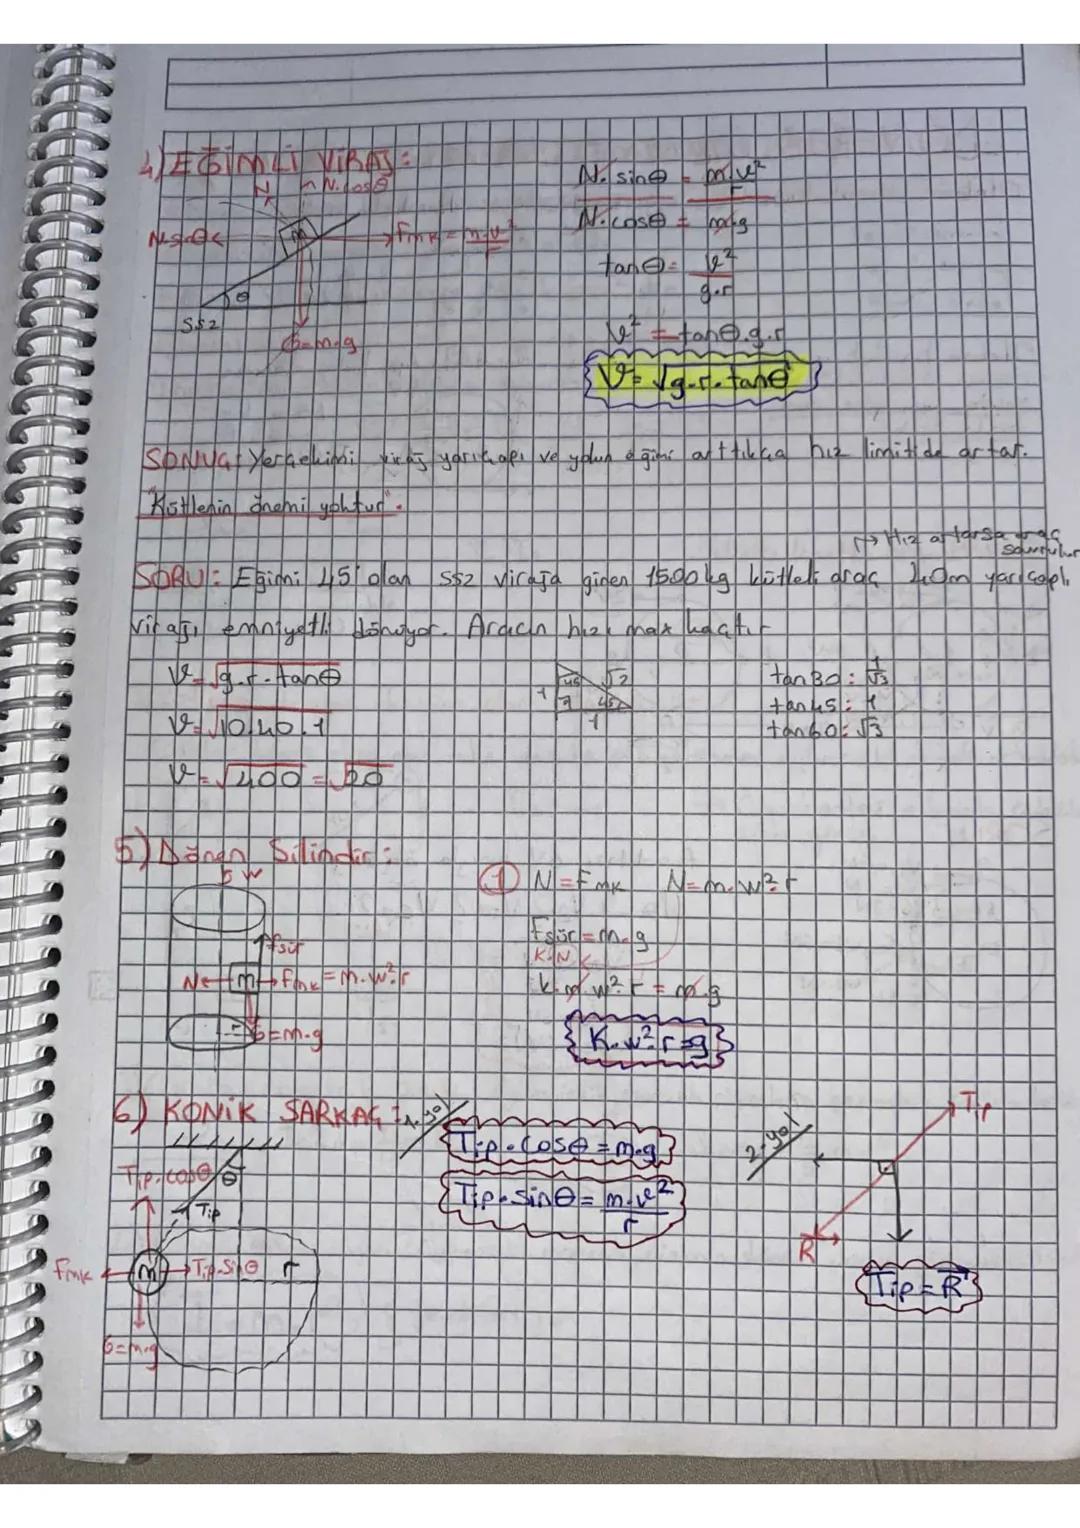 4) EĞİMLİ VİRAJ:
N
N.cosθ
N.sinθ
m
Fmk = m.v²/r
θ
SSZ
G=m.g
N.sinθ = m.v²/r
N.cosθ = m.g
tanθ = v²/g.r
V² = tanθ.g.r
V = √g.r.tanθ
SONUÇ: Yerçekimi viraj yarıçapı ve yolun eğimi arttıkça hız limitide artar.
"Kütlenin önemi yoktur".
→ Hız artarsa araç
savrulur
SORU: Eğimi 45° olan SSZ viraja giren 1500 kg kütleli araç 40m yarıçaplı
virajı emniyetli dönüyor. Aracın hızı max kaçtır
V = √g.r.tanθ
V = √10.40.1
V = √400 = √20
45
√2
1
45
1
tan30: 1/√3
tan45: 1
tan60: √3
5) Dönen Silindir:
w
fsür
N
m
Fmk = m.w².r
r
G=m.g
1 N = Fmk N = m.w².r
Fsür = m.g
K.N
k.m.w².r = m.g
K.w².r = g
6) KONİK SARKAÇ:
1.yol
Tip.cosθ
θ
Tip
Fmk
m
Tip.Sinθ
r
G=m.g
Tip.cosθ = m.g
Tip.Sinθ = m.v²/r
2.yol
Tip
R
Tip = R